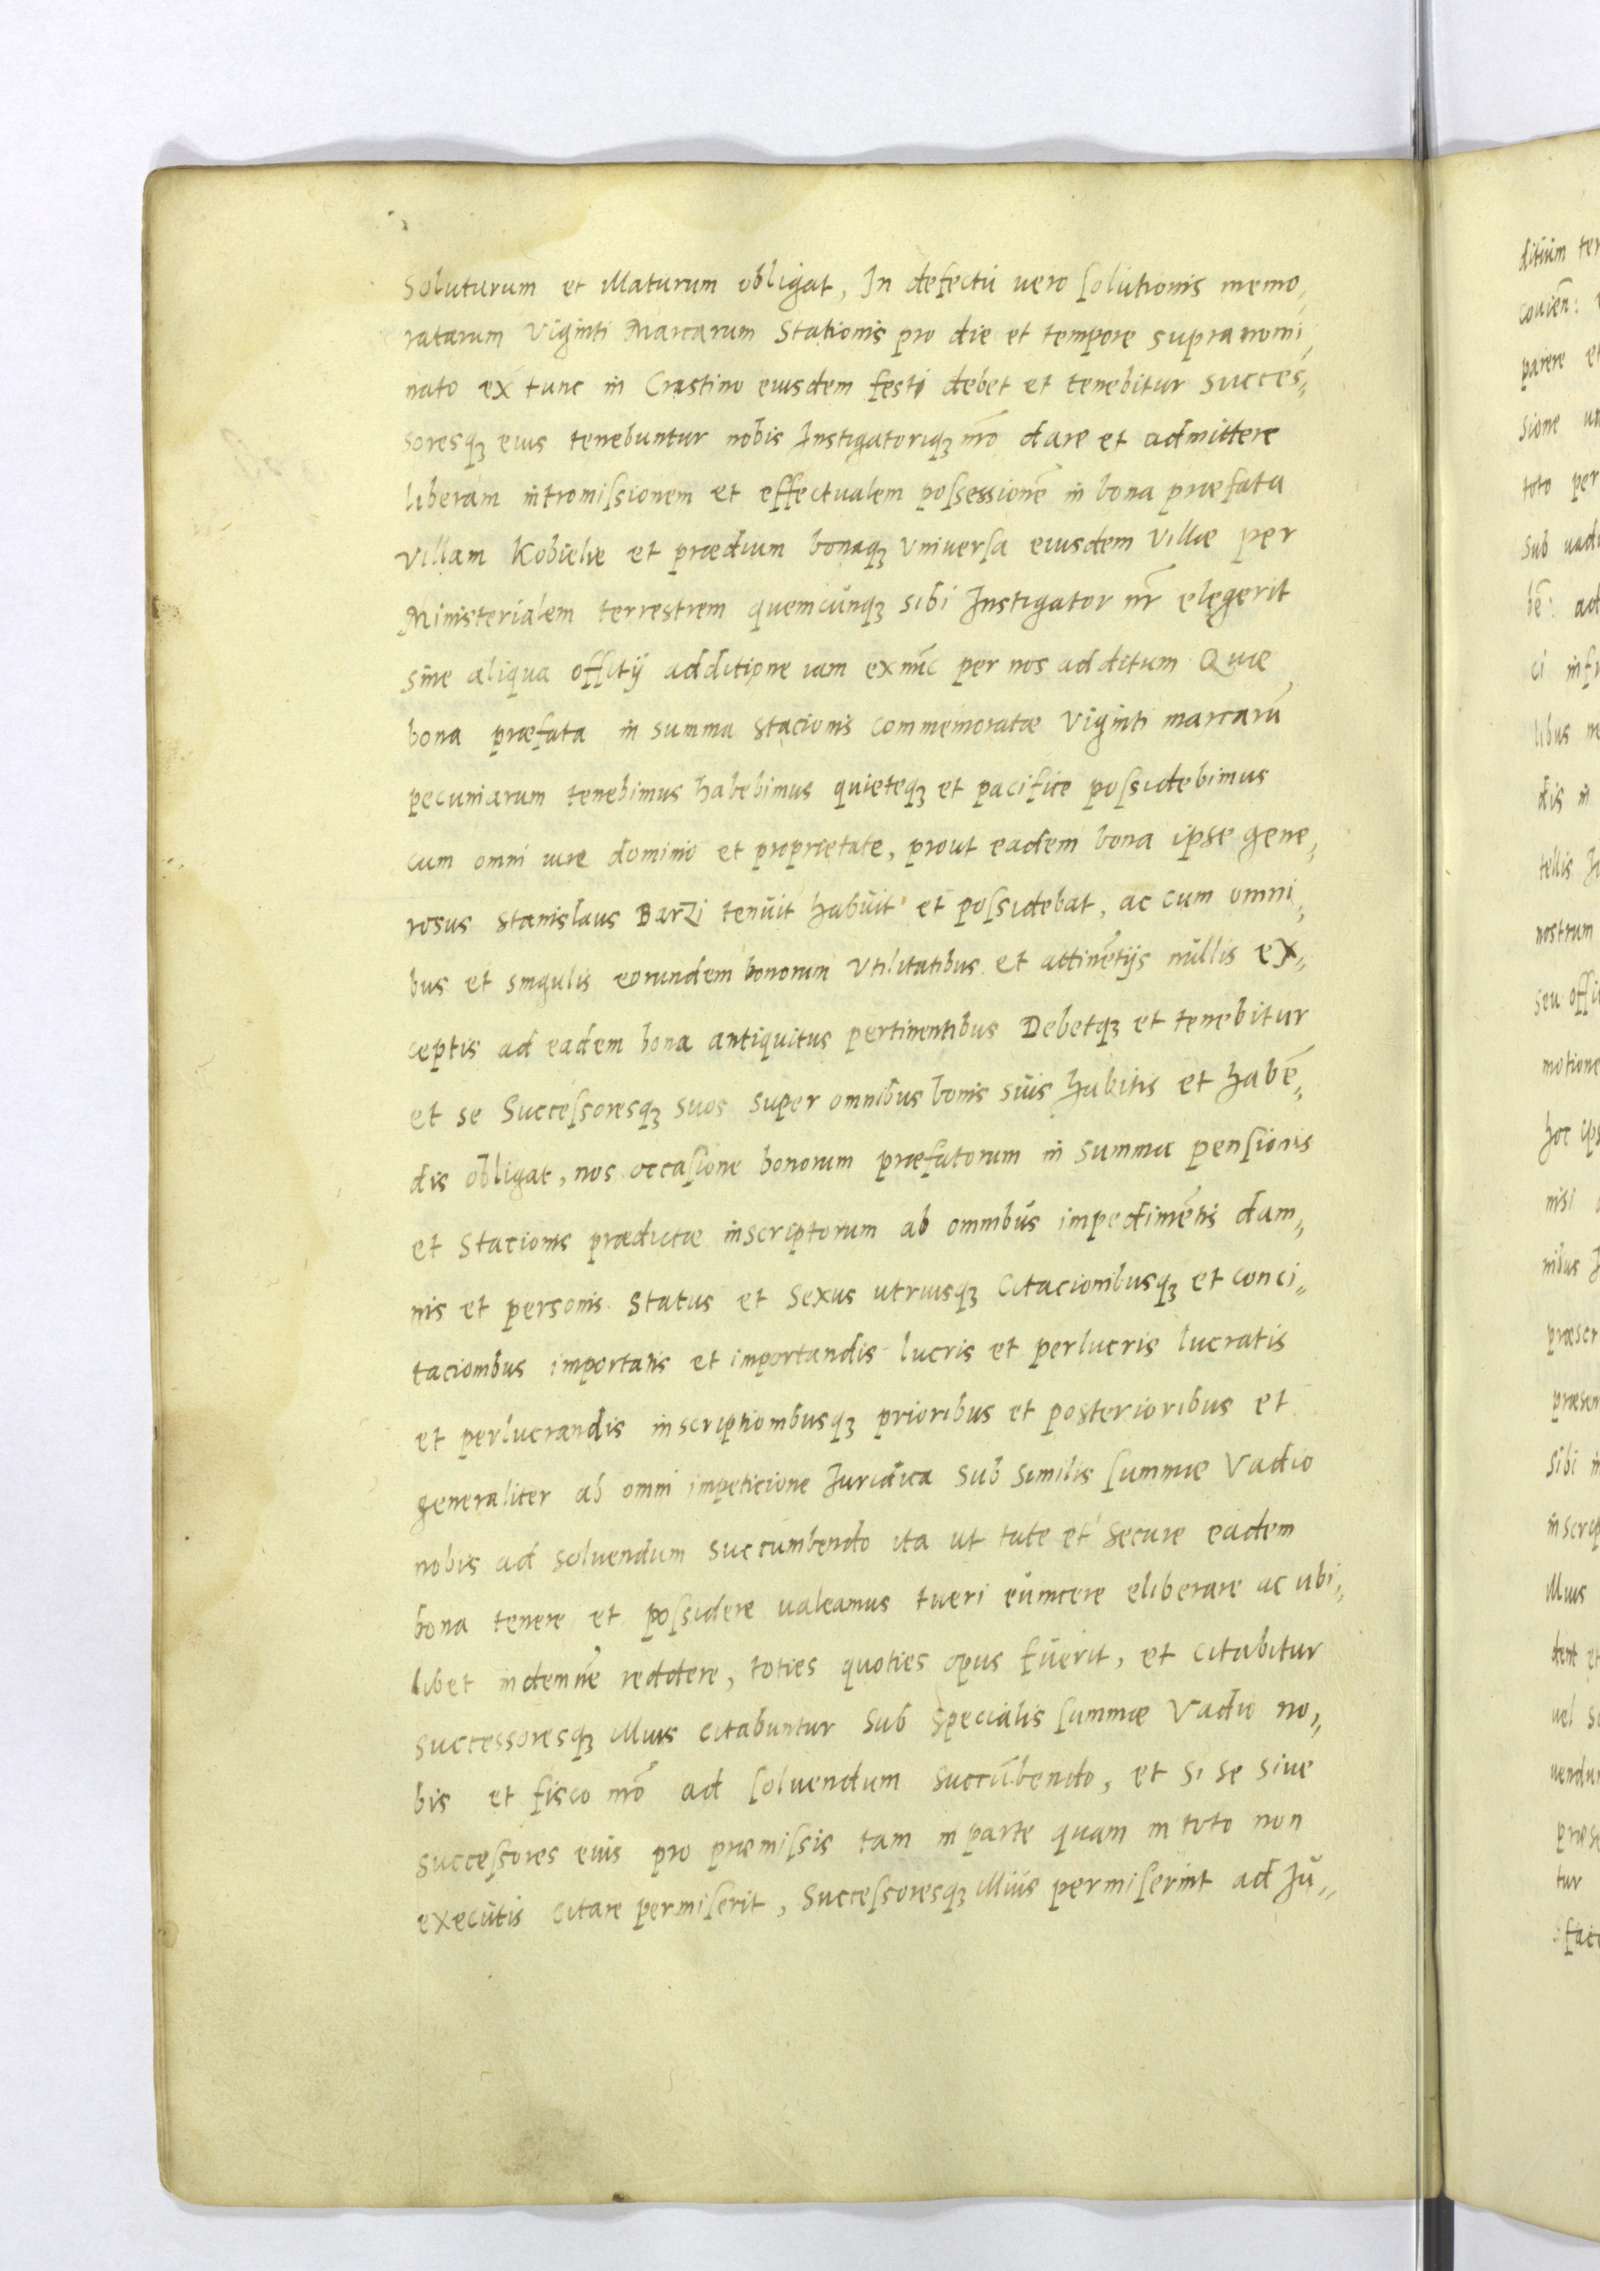 Soluturum et Maturum obligat, In defectu uero ſolutionis memo,
ratarum Viginti Marcarum Stationis pro die et tempore supra nomi,
nato ex tunc in Crastino eiusdem festi debet et tenebitur succes,,
soresqꝫ eius tenebuntur nobis Instigatoriqꝫ nr̃o dare et admittere
liberam intromiſsionem et effectualem poſsessionẽ in bona præfata
Villam Kobiele et prædium bonaqꝫ Vniuerſa eiusdem Villæ per
Ministerialem terrestrem quemcunqꝫ sibi Instigator nr̃ elegerit
sine aliqua officij additione iam ex nũc per nos additum Quæ
bona præfata in summa Stacionis commemoratæ Viginti marcarũ
pecuniarum tenebimus habebimus quieteqꝫ et pacifice poſsidebimus
cum omni iure dominio et proprietate, prout eadem bona ipse gene,
rosus Stanislaus Barzi tenuit habuit et poſsidebat, ac cum omni,
bus et singulis eorundem bonorum Vtilitatibus et attinẽtijs nullis ex,,
ceptis ad eadem bona antiquitus pertinentibus Debetqꝫ et tenebitur
et se Succeſsoresqꝫ suos super omnibus bonis suis habitis et habẽ,,
dis obligat, nos occaſione bonorum præfatorum in summa penſionis
et Stacionis prædictæ inscriptorum ab omnibus impedimẽtis dam,,
nis et personis Status et Sexus utriusqꝫ Citacionibusqꝫ et conci,,
tacionibus importatis et importandis lucris et perlucris lucratis
et perlucrandis inscriptionibusqꝫ prioribus et posterioribus et
generaliter ab omni impeticione Juridica sub similis ſummæ Vadio
nobis ad soluendum succumbendo ita ut tute et secure eadem
bona tenere et poſsidere ualeamus tueri euincere eliberare ac ubi,
libet indemnẽ reddere, toties quoties opus fuerit, et citabitur
successoresqꝫ illius citabuntur sub specialis ſummæ Vadio no,,
bis et fisco nr̃o ad ſoluendum succũbendo, et si se siue
succeſsores eius pro præmiſsis tam in parte quam in toto non
executis citare permiſerit, Succeſsoresqꝫ illius permiſerint ad Ju,,
ditium ter
parere et
sione
toto per
sub uad
ad
libus
dis in
tellis
nostrum
seu offi
motione
hoc ips
nisi
nibus
præscr
præsen
sibi in
inscrip
illius
dent et
uel
uendu
præse
tur